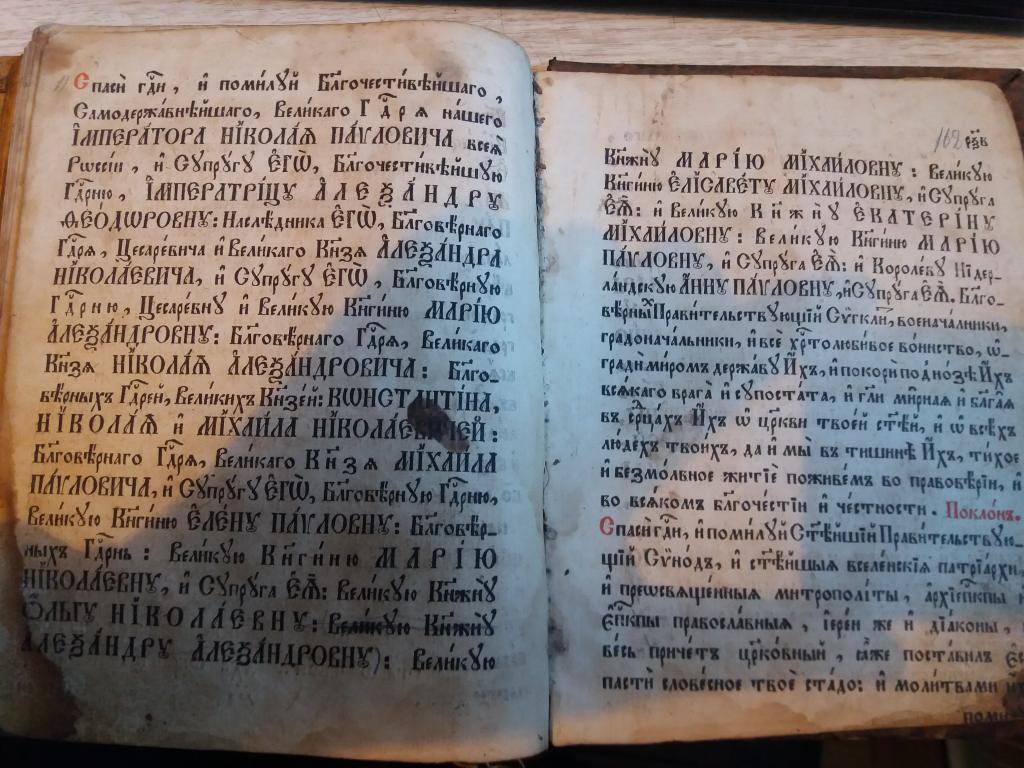 Спаси́ гдⷭ҇и, и҆ поми́лꙋй Бл҃гочести́вѣйшаго,
Самодержа́внѣйшаго, Вели́каго Гдⷭ҇рѧ на́шего
І҆МПЕРА́ТОРА НІКОЛА́Ѧ ПА́VЛОВИЧА всеѧ̀
Рѡссі́и, и҆ Сꙋпрꙋ́гꙋ Є҆ГѠ̀, Бл҃гочести́вѣйшꙋю
Гдⷭ҇рню, І҆МПЕРАТРІ́ЦꙊ А҆ЛЕѮА́НДРꙊ
Ѳ҆ЕО́ДѠРОВНꙊ: Наслѣ́дника Є҆ГѠ̀, Бл҃говѣ́рнаго
Гдⷭ҇рѧ, Цесаре́вича и҆ Вели́каго Кн҃зѧ А҆ЛЕѮА́НДРА
НІКОЛА́ЕВИЧА, и҆ Сꙋпрꙋ́гꙋ Є҆ГѠ̀, Бл҃говѣ́рнꙋю
Гдⷭ҇рню, Цесаре́внꙋ и҆ Вели́кꙋю Кн҃ги́ню МАРІ́Ю
А҆ЛЕѮА́НДРОВНꙊ: Бл҃говѣ́рнаго Гдⷭ҇рѧ, Вели́каго
Кн҃зѧ НІКОЛА́Ѧ А҆ЛЕѮА́НДРОВИЧА: Бл҃го-
вѣ́рныхъ Гдⷭ҇рей, Вели́кихъ Кн҃зе́й: КѠНСТАНТІ́НА,
НІКОЛА́Ѧ и҆ МІХАИ́ЛА НІКОЛА́ЕВИЧЕЙ:
Бл҃говѣ́рнаго Гдⷭ҇рѧ, Вели́каго Кн҃зѧ МІХАИ́ЛА
ПА́VЛОВИЧА, и҆ Сꙋпрꙋ́гꙋ Є҆ГѠ̀, Бл҃говѣ́рнꙋю Гдⷭ҇рню,
Вели́кꙋю Кн҃ги́ню Є҆ЛЕ́НꙊ ПА́VЛОВНꙊ: Бл҃говѣ́р-
ныхъ Гдⷭ҇рнь: Вели́кꙋю Кн҃ги́ню МАРІ́Ю
НІКОЛА́ЕВНꙊ, и҆ Сꙋпрꙋ́га Є҆Ѧ̀: Вели́кꙋю Кн҃жнꙋ̀
Ѻ҆́ЛЬГꙊ НІКОЛА́ЕВНꙊ: Вели́кꙋю Кн҃жнꙋ̀
А҆ЛЕѮА́НДРꙊ А҆ЛЕѮА́НДРОВНꙊ): Вели́кꙋю
162 рѯ҃в
Кн҃жнꙋ̀ МАРІ́Ю МІХАИ́ЛОВНꙊ: Вели́кꙋю
Кн҃ги́ню Є҆ЛІСАВЕ́ТꙊ МІХАИ́ЛОВНꙊ, и҆ Сꙋпрꙋ́га
Є҆Ѧ̀: и҆ Вели́кꙋю Кн҃жнꙋ̀ Є҆КАТЕРІ́НꙊ
МІХАИ́ЛОВНꙊ: Вели́кꙋю Кн҃ги́ню МАРІ́Ю
ПА́VЛОВНꙊ, и҆ Сꙋпрꙋ́га Є҆Ѧ̀: и҆ Короле́вꙋ Нідер-
ла́ндскꙋю А҆́ННꙊ ПА́VЛОВНꙊ, и҆ Сꙋпрꙋ́га Є҆Ѧ̀. Бл҃го-
вѣ́рный Прави́тельствꙋющїй Сѷгкли́тъ, военача́лники,
градонача́льники, и҆ всѐ хрⷭ҇толюби́вое во́инство, ѡ҆-
градѝ ми́ромъ держа́вꙋ И҆́хъ, и҆ покорѝ под но́зѣ И҆́хъ
всѧ́каго врага̀ и҆ сꙋпоста́та, и҆ гл҃и ми̑рнаѧ и҆ бл҃га̑ѧ
въ срⷣца́хъ И҆́хъ ѡ҆ цр҃кви твое́й ст҃ѣ́й, и҆ ѡ҆ всѣ́хъ
лю́дехъ твои́хъ, да и҆ мы̀ въ тишинѣ̀ И҆́хъ, ти́хое
и҆ безмо́лвное житїѐ поживе́мъ во правовѣ́рїи, и҆
во всѧ́комъ бл҃гоче́стїи и҆ че́стности. Покло́нъ.
Спаси́ гдⷭ҇и, и҆ поми́лꙋй Ст҃ѣ́йшїй Прави́тельствꙋю-
щїй Сѷно́дъ, и҆ ст҃ѣ́йшыѧ вселе́нскїѧ патрїа́рхи,
и҆ преѡсвѧщє́нныѧ митрополі́ты, а҆рхїепⷭ҇кпы и҆
є҆пⷭ҇кпы правосла́вныѧ, і҆ере́и же и҆ дїа́коны,
ве́сь причє́тъ цр҃ко́вный, ꙗ҆̀же поста́вилъ є҆сѝ
пастѝ слове́сное твоѐ ста́до: и҆ моли́твами и҆́хъ